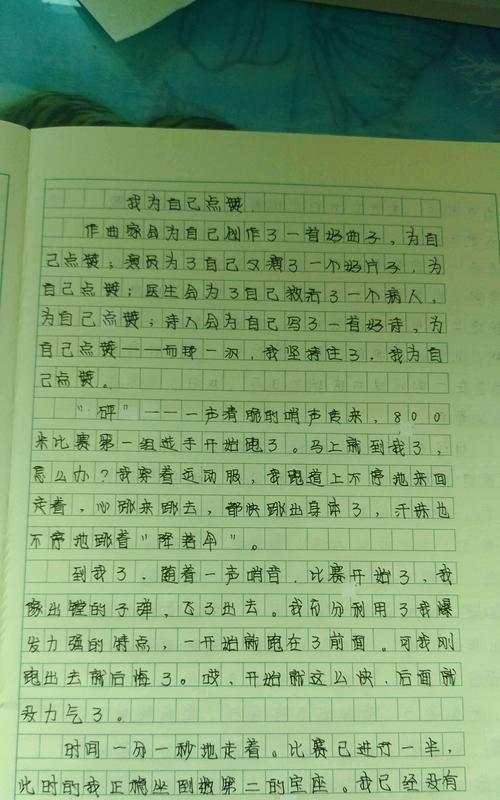 我为自己点赞
作曲家会为自己创作了一首好曲子，为自
己点赞；演员为了自己又演了一个好片子，为
自己点赞；医生会为了自己救活了一个病人，
为自己点赞；诗人会为自己写了一首好诗，为
自己点赞——而那一次，我坚持住了，我为自
己点赞。
“砰”——一声清脆的哨声传来，800
米比赛第一组选手开始跑了。马上就到我了，
怎么办？我穿着运动服，我跑道上不停地来回
走着，心跳来跳去，都快跳出身体了，汗珠也
不停地跳着“降落伞”。
到我了，随着一声哨音，比赛开始了，我
像出镗的子弹，飞了出去。我充分利用了我爆
发力强的特点，一开始就跑在了前面。可我刚
跑出去就后悔了。哎，开始就这么快，后面就
没力气了。
时间一分一秒地走着。比赛已进行一半，
此时的我正稳坐到数第二的宝座。我已经没有